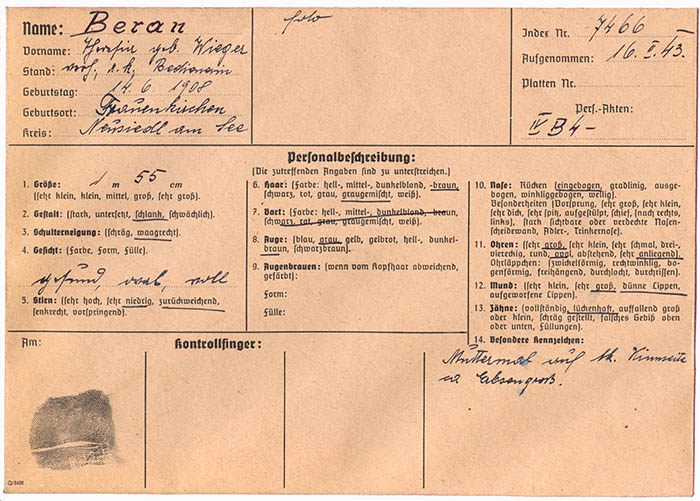 Name: Beran
Vorname: geb. Wieger
Stand: verh., r.k.,
Geburtstag: 14. 6. 1908
Geburtsort: Frauenkirchen
Kreis: Neusiedl am See
foto
Index Nr. 7466
Aufgenommen: 16. II. 43.
Platten Nr.
Pers.-Akten:
IV B4-
Personalbeschreibung:
(Die zutreffenden Angaben sind zu unterstreichen.)
1. Größe: 1 m 55 cm
(sehr klein, klein, mittel, groß, sehr groß).
2. Gestalt: (stark, untersetzt, schlank, schwächlich).
3. Schulterneigung: (schräg, waagrecht).
4. Gesicht: (Farbe, Form, Fülle).
gesund, oval, voll
5. Stirn: (sehr hoch, sehr niedrig, zurückweichend,
senkrecht, vorspringend).
6. Haar: (Farbe: hell-, mittel-, dunkelblond, -braun,
schwarz, rot, grau, graugemischt, weiß).
7. Bart: (Farbe: hell-, mittel-, dunkelblond, -braun,
schwarz, rot, grau, graugemischt, weiß).
8. Auge: (blau, grau, gelb, gelbrot, hell-, dunkel-
braun, schwarzbraun).
9. Augenbrauen: (wenn vom Kopfhaar abweichend,
gefärbt):
Form:
Fülle:
10. Nase: Rücken (eingebogen, gradlinig, ausge-
bogen, winkliggebogen, wellig).
Besonderheiten (Vorsprung, sehr groß, sehr klein,
sehr dick, sehr spitz, aufgestülpt, schief, (nach rechts,
links), stark sichtbare oder verdeckte Nasen-
scheidewand, Adler-, Trinkernase).
11. Ohren: (sehr groß, sehr klein, sehr schmal, drei-,
viereckig, rund, oval, abstehend, sehr anliegend).
Ohrläppchen: (zwickelförmig, rechtwinklig, bo-
genförmig, freihängend, durchlocht, durchrissen).
12. Mund: (sehr klein, sehr groß, dünne Lippen,
aufgeworfene Lippen).
13. Zähne: (vollständig, lückenhaft, auffallend groß
oder klein, schräg gestellt, falsches Gebiß oben
oder unten, Füllungen).
14. Besondere Kennzeichen:
Muttermal auf lk. Kinnseite
ca Erbsengroß.
Am:
Kontrollfinger: